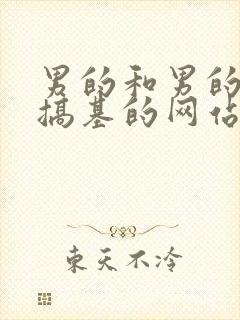 男的和男的
搞基的网佔
東天不冷